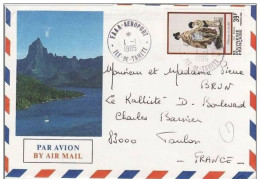 FAAA-AEROPORT
1-1
1985
ILE DE TAHITI
Monsieur et Madame Pierre
BRUN
Le Kallisté D. Boulevard
Charles Barnier
83000
Toulon
- FRANCE -
PAR AVION
BY AIR MAIL